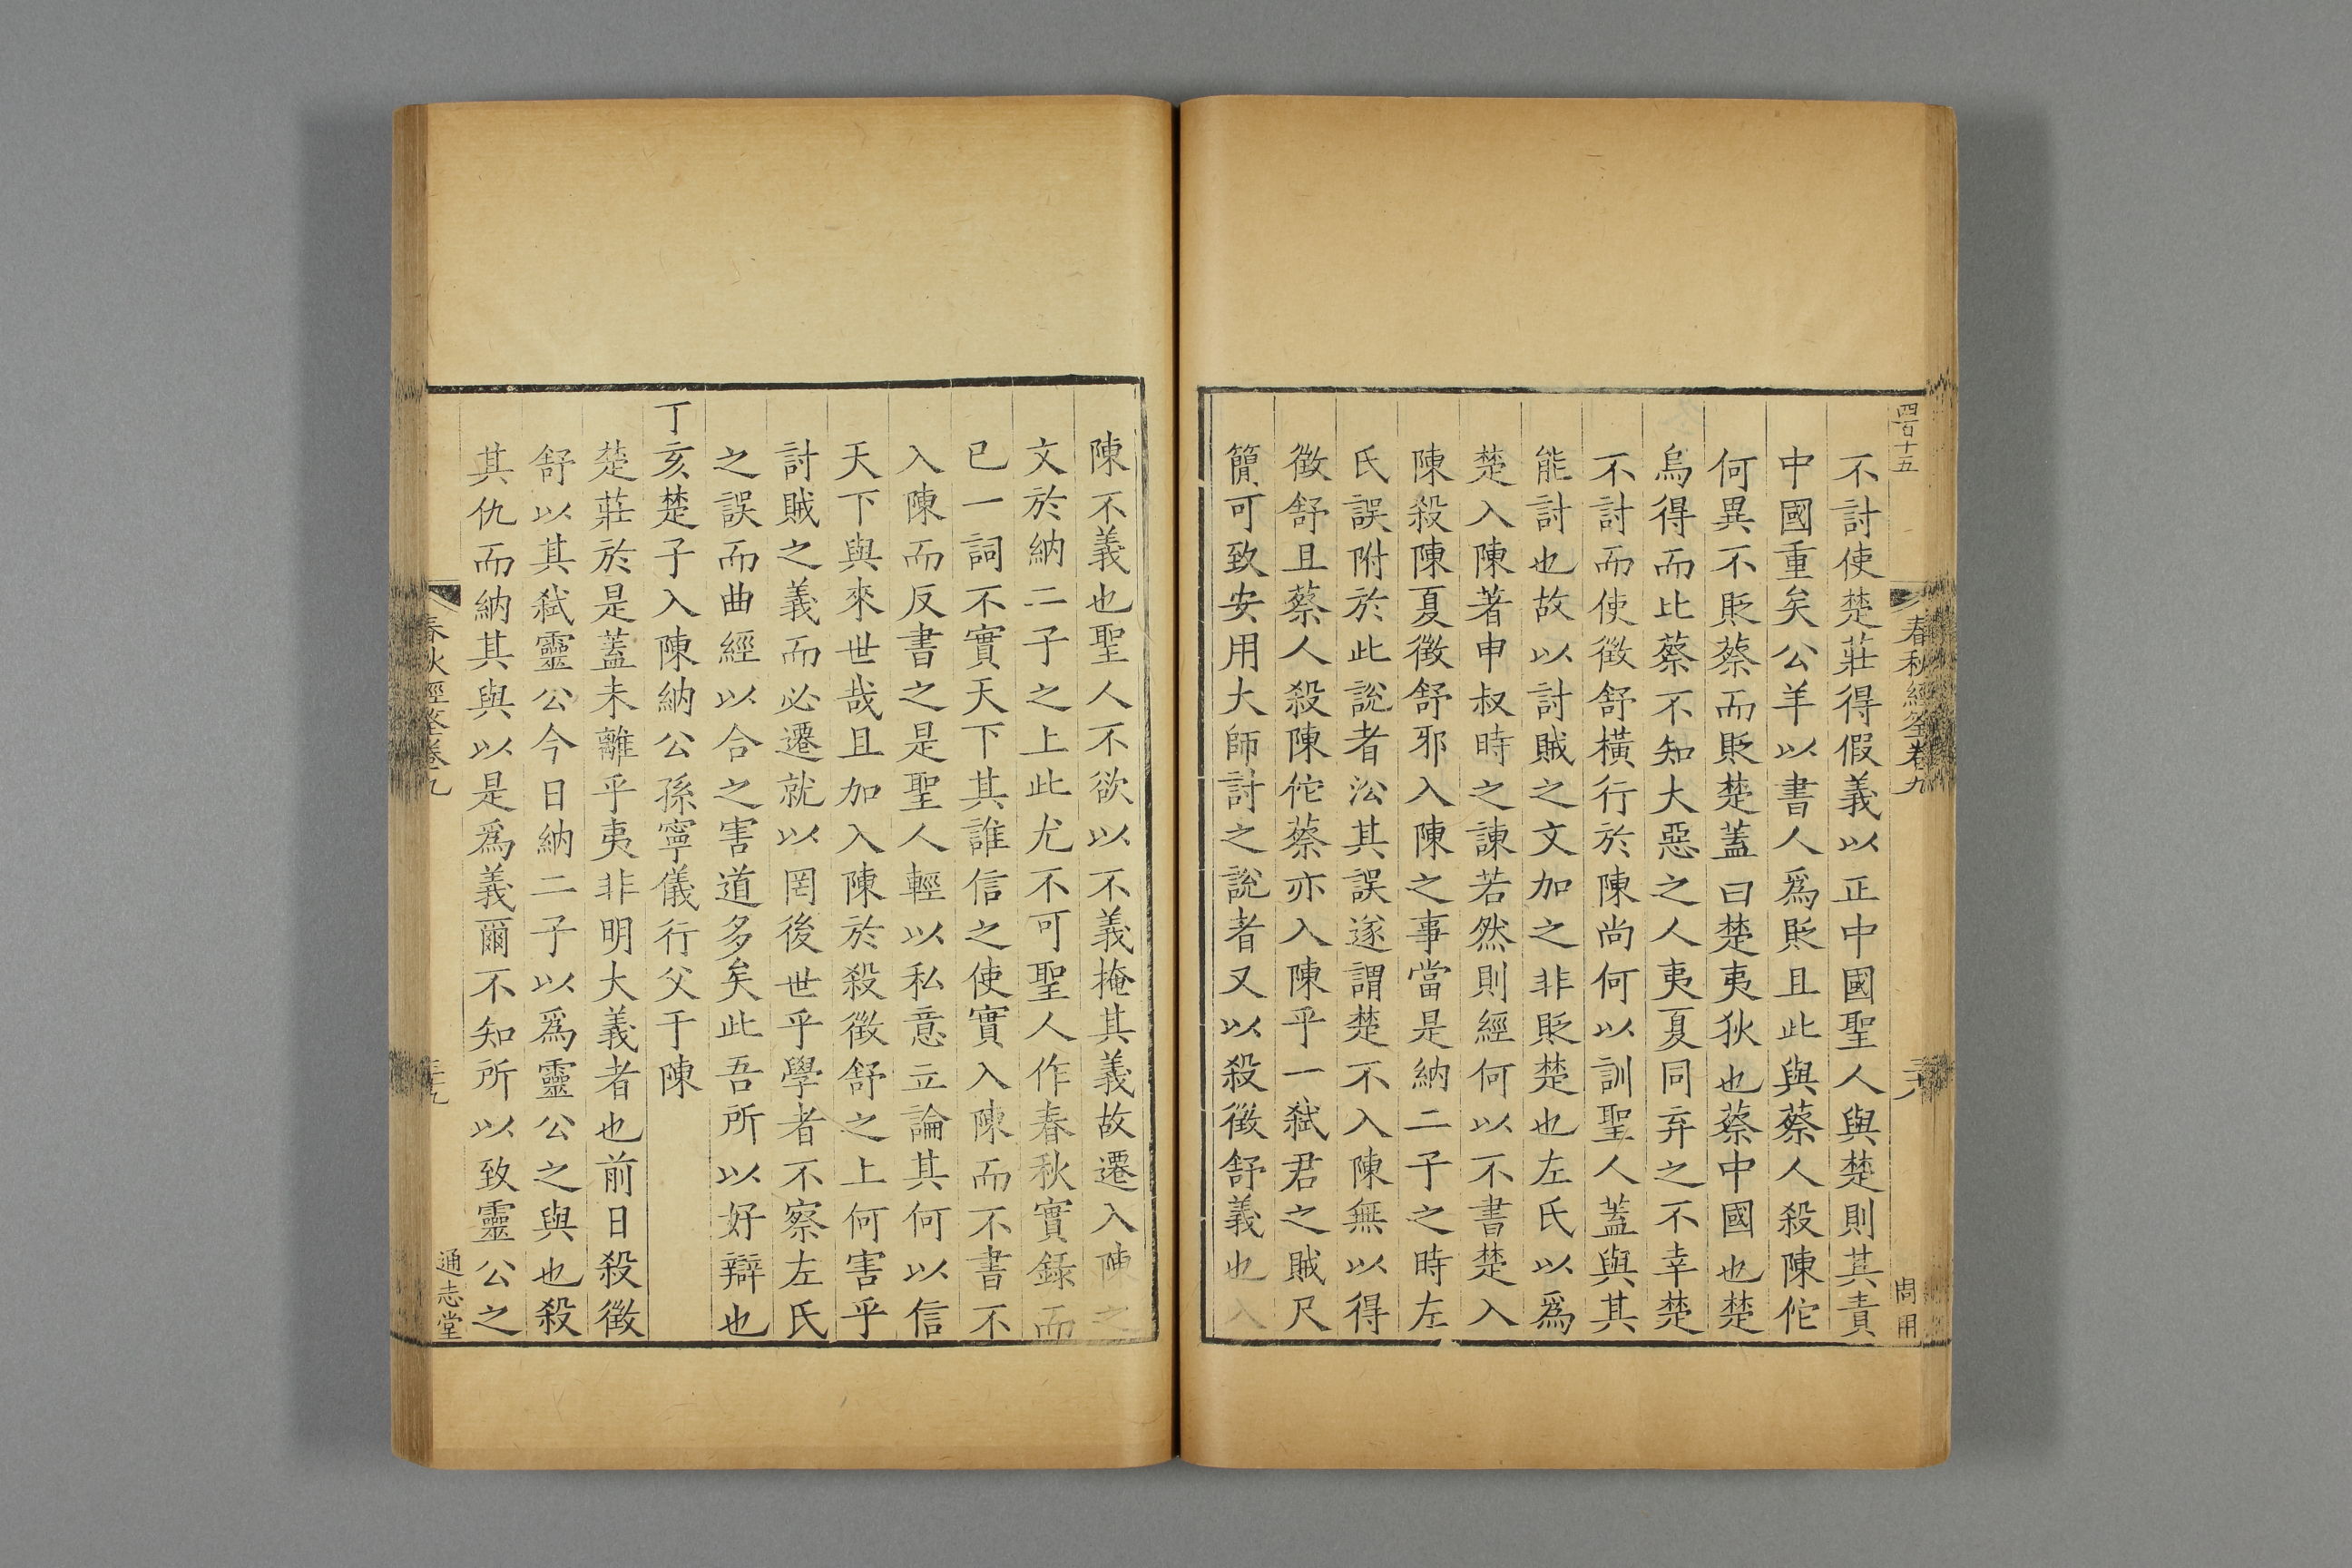 四百十五
春秋經筌卷九
不討使楚莊得假義以正中國聖人與楚則其責
中國重矣公羊以書人爲貶且此與蔡人殺陳佗
何異不貶蔡而貶楚蓋曰楚夷狄也蔡中國也楚
烏得而比蔡不知大惡之人夷夏同弃之不幸楚
不討而使徵舒橫行於陳尚何以訓聖人蓋與其
能討也故以討賊之文加之非貶楚也左氏以爲
楚入陳著申叔時之諫若然則經何以不書楚入
陳殺陳夏徵舒邪入陳之事當是納二子之時左
氏誤附於此說者㳂其誤遂謂楚不入陳無以得
徵舒且蔡人殺陳佗蔡亦入陳乎一弒君之賊尺
簡可致安用大師討之說者又以殺徵舒義也入
陳不義也聖人不欲以不義掩其義故遷入陳之
文於納二子之上此尤不可聖人作春秋實錄而
已一詞不實天下其誰信之使實入陳而不書不
入陳而反書之是聖人輕以私意立論其何以信
天下與來世哉且加入陳於殺徵舒之上何害乎
討賊之義而必遷就以罔後世乎學者不察左氏
之誤而曲經以合之害道多矣此吾所以好辯也
丁亥楚子入陳納公孫寧儀行父于陳
楚莊於是蓋未離乎夷非明大義者也前日殺徵
舒以其弒靈公今日納二子以爲靈公之與也殺
其仇而納其與以是爲義爾不知所以致靈公之
春秋經筌卷九
通志堂